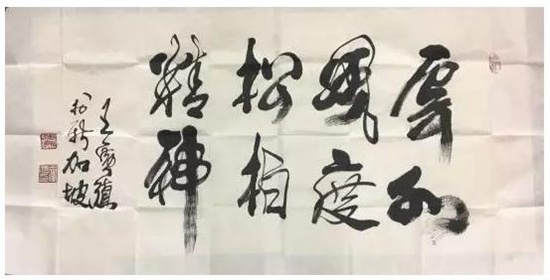 雲水
風度
松柏
精神
王
於新加坡